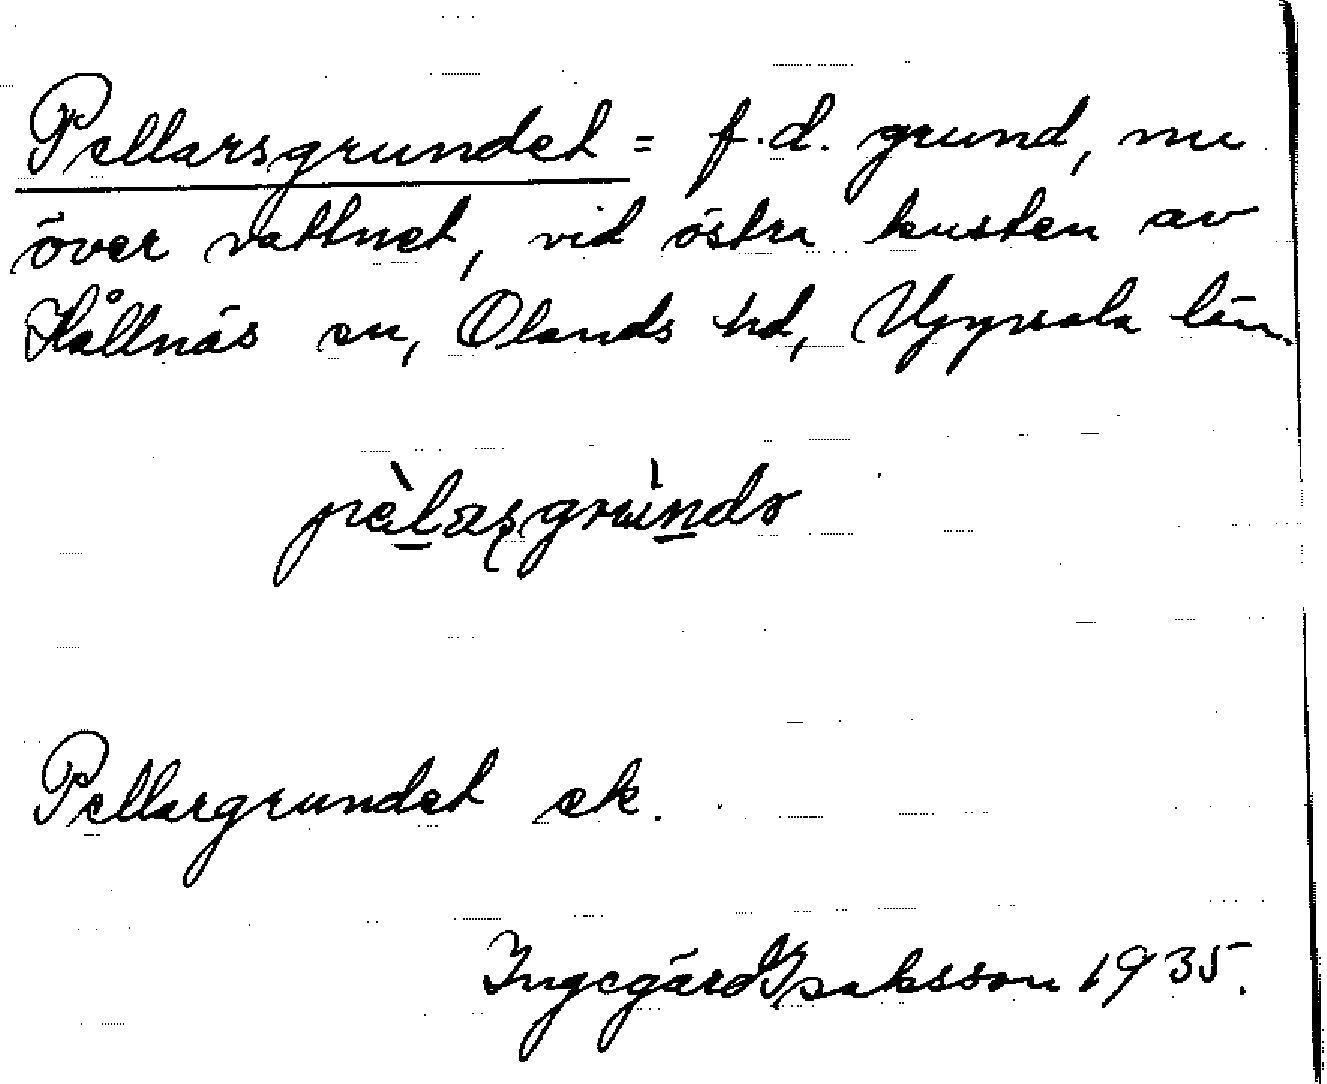 Pellarsgrundet = f.d. grund, nu
över vattnet, vid östra kusten av
Hållnäs sn, Olands hd, Uppsala län.
Pellargrundet ek.
Ingegärd Isaksson 1935.